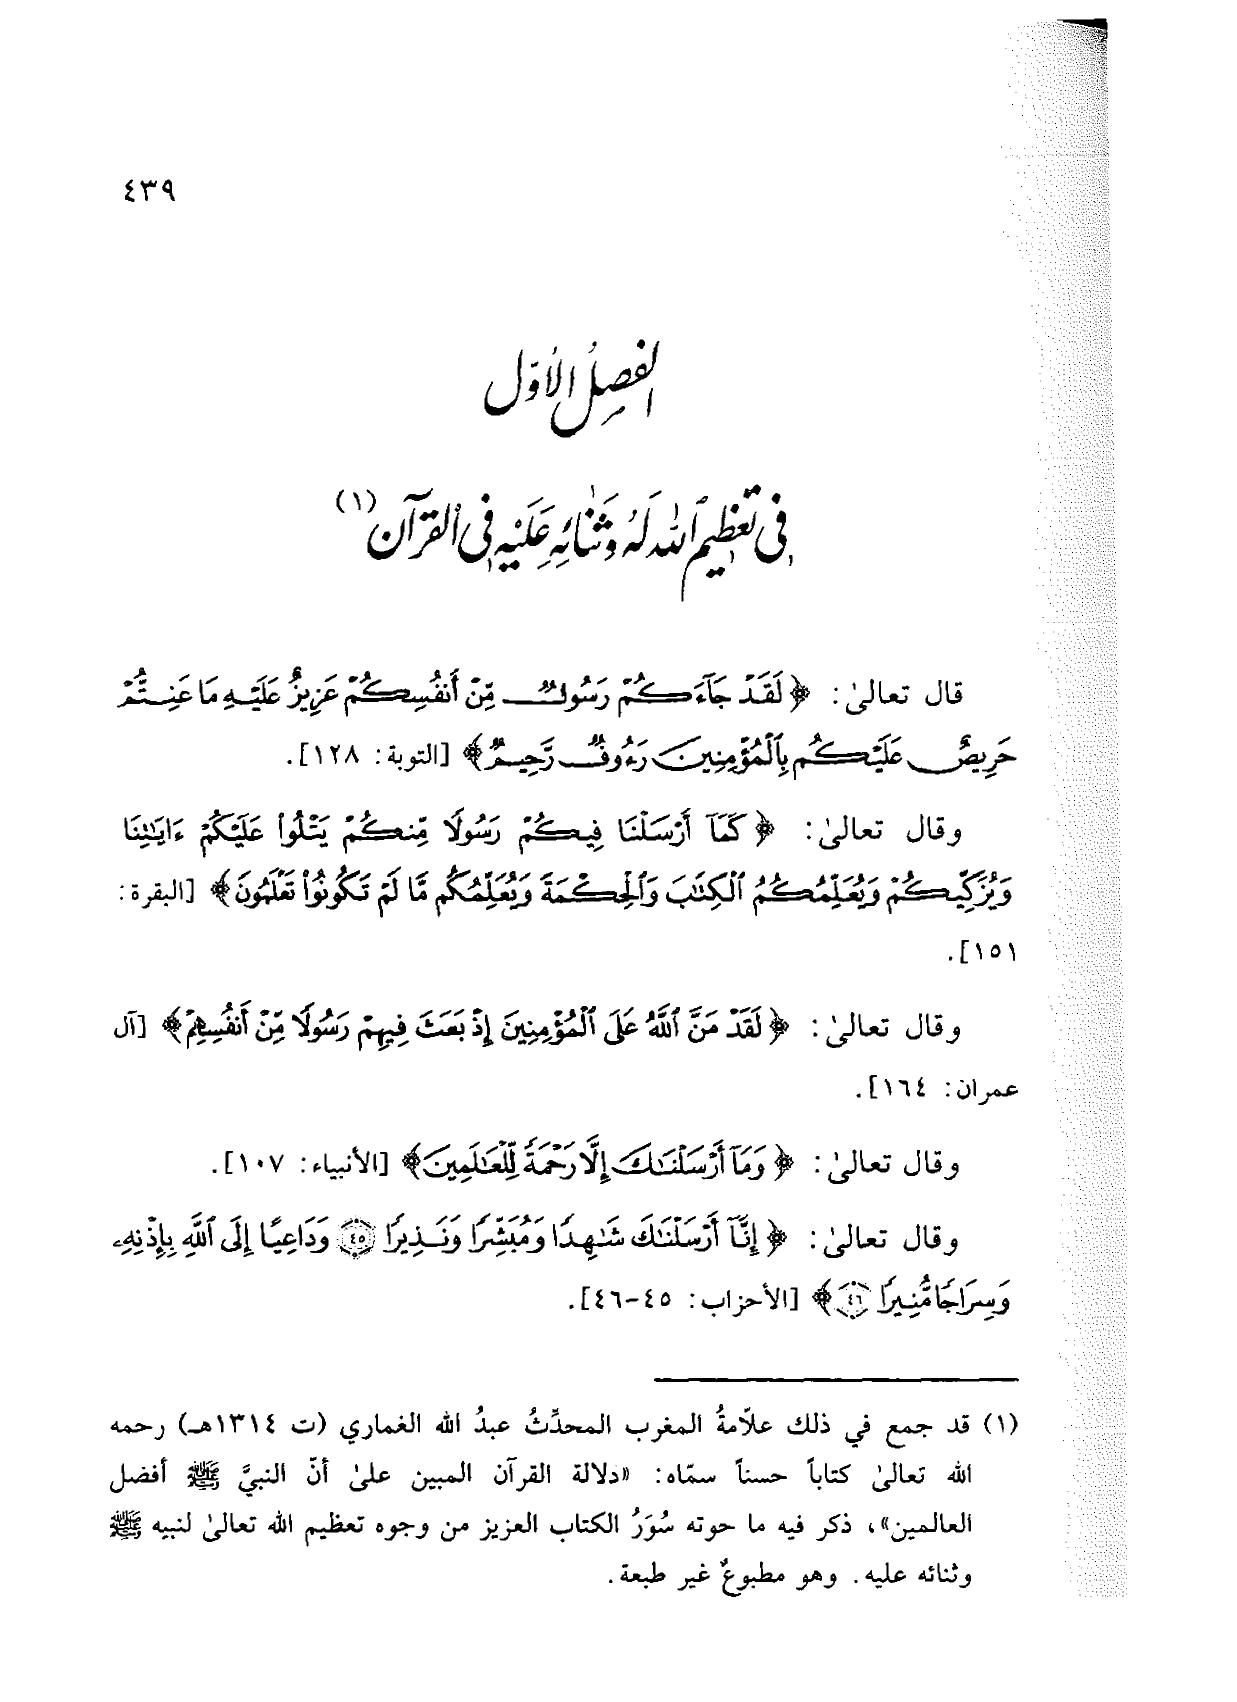 ٤٣٩
الفصل الأوّل
في تعظيم الله له وثنائه عليه في القرآن(١)
قال تعالىٰ: ﴿لَقَدْ جَآءَكُمْ رَسُولٌ مِّنْ أَنفُسِكُمْ عَزِيزٌ عَلَيْهِ مَا عَنِتُّمْ
حَرِيصٌ عَلَيْكُم بِٱلْمُؤْمِنِينَ رَءُوفٌ رَّحِيمٌ﴾ [التوبة: ١٢٨].
وقال تعالىٰ: ﴿كَمَآ أَرْسَلْنَا فِيكُمْ رَسُولًا مِّنكُمْ يَتْلُوا۟ عَلَيْكُمْ ءَايَٰتِنَا
وَيُزَكِّيكُمْ وَيُعَلِّمُكُمُ ٱلْكِتَٰبَ وَٱلْحِكْمَةَ وَيُعَلِّمُكُم مَّا لَمْ تَكُونُوا۟ تَعْلَمُونَ﴾ [البقرة:
١٥١].
وقال تعالىٰ: ﴿لَقَدْ مَنَّ ٱللَّهُ عَلَى ٱلْمُؤْمِنِينَ إِذْ بَعَثَ فِيهِمْ رَسُولًا مِّنْ أَنفُسِهِمْ﴾ [آل
عمران: ١٦٤].
وقال تعالىٰ: ﴿وَمَآ أَرْسَلْنَٰكَ إِلَّا رَحْمَةً لِّلْعَٰلَمِينَ﴾ [الأنبياء: ١٠٧].
وقال تعالىٰ: ﴿إِنَّآ أَرْسَلْنَٰكَ شَٰهِدًا وَمُبَشِّرًا وَنَذِيرًا ٤٥ وَدَاعِيًا إِلَى ٱللَّهِ بِإِذْنِهِۦ
وَسِرَاجًا مُّنِيرًا ٤٦﴾ [الأحزاب: ٤٥-٤٦].
(١) قد جمع في ذلك علاّمةُ المغرب المحدِّثُ عبدُ الله الغماري (ت ١٣١٤هـ) رحمه
الله تعالىٰ كتاباً حسناً سمّاه: «دلالة القرآن المبين علىٰ أنّ النبيَّ ﷺ أفضل
العالمين»، ذكر فيه ما حوته سُوَرُ الكتاب العزيز من وجوه تعظيم الله تعالىٰ لنبيه ﷺ
وثنائه عليه. وهو مطبوعٌ غير طبعة.